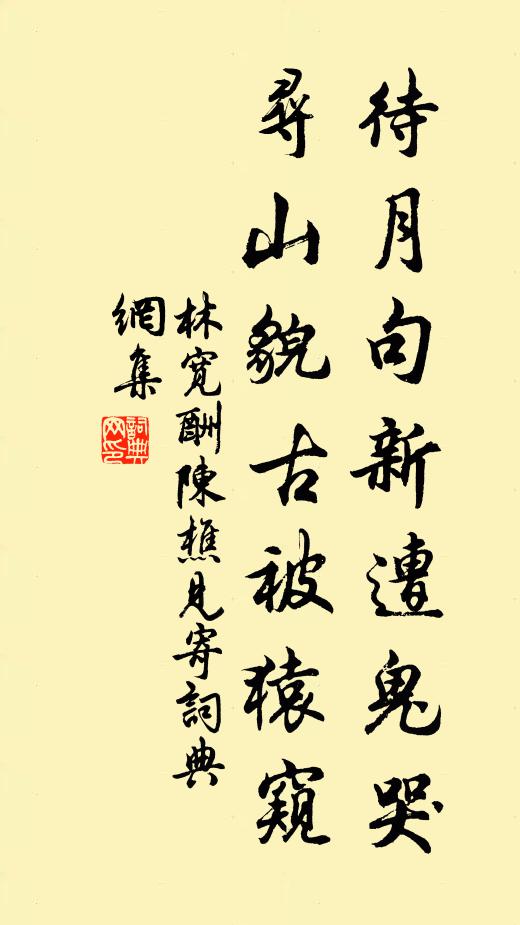 待月句新遭鬼哭
尋山貌古被猿窺
林寬酬陳樵見寄詞典
網集
詞典
网印